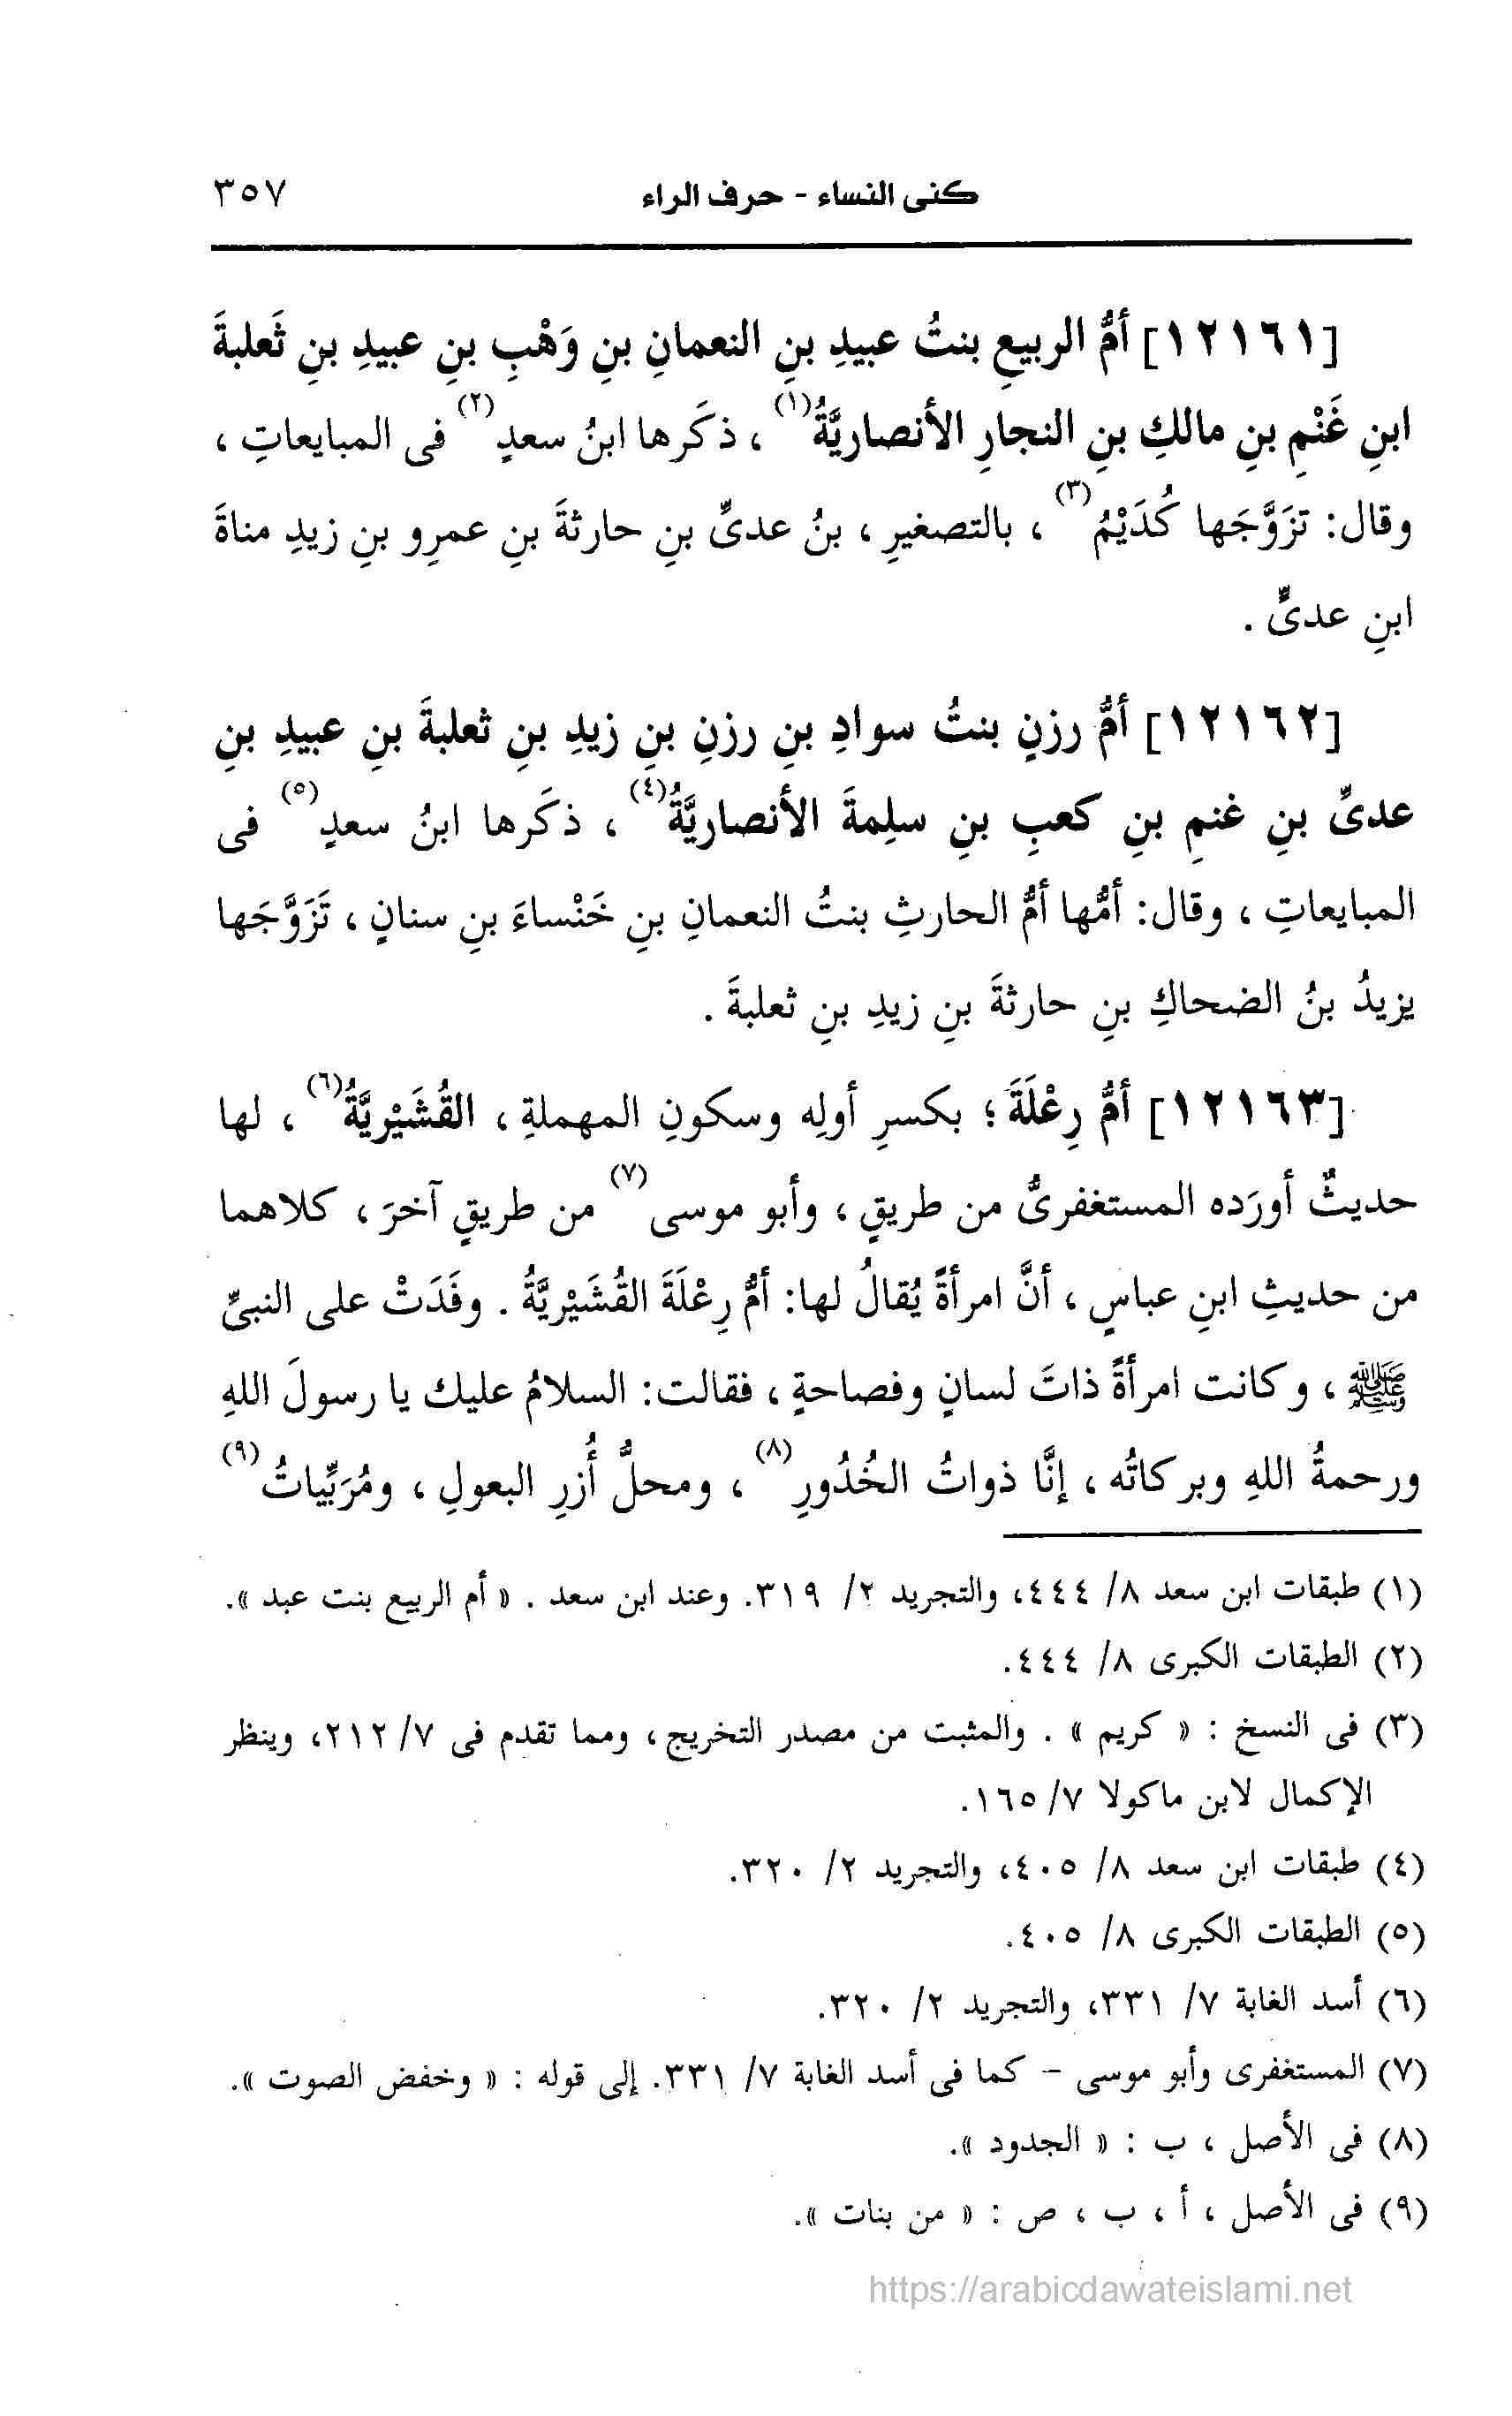 كنى النساء - حرف الراء ٣٥٧
[١٢١٦١] أمُّ الربيعِ بنتُ عبيدِ بنِ النعمانِ بنِ وَهْبِ بنِ عبيدِ بنِ ثَعلبةَ
ابنِ غَنْمِ بنِ مالكِ بنِ النجارِ الأنصاريَّةُ(١) ، ذكَرها ابنُ سعدٍ(٢) فى المبايعاتِ ،
وقال: تزَوَّجَها كُدَيْمُ(٣) ، بالتصغيرِ ، بنُ عدىِّ بنِ حارثةَ بنِ عمرِو بنِ زيدِ مناةَ
ابنِ عدىٍّ .
[١٢١٦٢] أمُّ رزنٍ بنتُ سوادِ بنِ رزنِ بنِ زيدِ بنِ ثعلبةَ بنِ عبيدِ بنِ
عدىِّ بنِ غنمِ بنِ كعبِ بنِ سلِمةَ الأنصاريَّةُ(٤) ، ذكَرها ابنُ سعدٍ(٥) فى
المبايعاتِ ، وقال: أمُّها أمُّ الحارثِ بنتُ النعمانِ بنِ خَنْساءَ بنِ سنانٍ ، تَزَوَّجَها
يزيدُ بنُ الضحاكِ بنِ حارثةَ بنِ زيدِ بنِ ثعلبةَ .
[١٢١٦٣] أمُّ رِعْلَةَ ؛ بكسرِ أولِه وسكونِ المهملةِ ، القُشَيْريَّةُ(٦) ، لها
حديثٌ أورَده المستغفرىُّ من طريقٍ ، وأبو موسى(٧) من طريقٍ آخرَ ، كلاهما
من حديثِ ابنِ عباسٍ ، أنَّ امرأةً يُقالُ لها: أمُّ رِعْلَةَ القُشَيْريَّةُ . وفَدَتْ على النبىِّ
ﷺ ، وكانت امرأةً ذاتَ لسانٍ وفصاحةٍ ، فقالت: السلامُ عليك يا رسولَ اللهِ
ورحمةُ اللهِ وبركاتُه ، إنَّا ذواتُ الخُدُورِ(٨) ، ومحلُّ أُزرِ البعولِ ، ومُرَبِّياتُ(٩)
(١) طبقات ابن سعد ٨/ ٤٤٤، والتجريد ٢/ ٣١٩. وعند ابن سعد . « أم الربيع بنت عبد ».
(٢) الطبقات الكبرى ٨/ ٤٤٤.
(٣) فى النسخ : « كريم » . والمثبت من مصدر التخريج ، ومما تقدم فى ٧/ ٢١٢، وينظر
الإكمال لابن ماكولا ٧/ ١٦٥.
(٤) طبقات ابن سعد ٨/ ٤٠٥، والتجريد ٢/ ٣٢٠.
(٥) الطبقات الكبرى ٨/ ٤٠٥.
(٦) أسد الغابة ٧/ ٣٣١، والتجريد ٢/ ٣٢٠.
(٧) المستغفرى وأبو موسى - كما فى أسد الغابة ٧/ ٣٣١. إلى قوله : « وخفض الصوت ».
(٨) فى الأصل ، ب : « الجدود ».
(٩) فى الأصل ، أ ، ب ، ص : « من بنات ».
https://arabicdawateislami.net